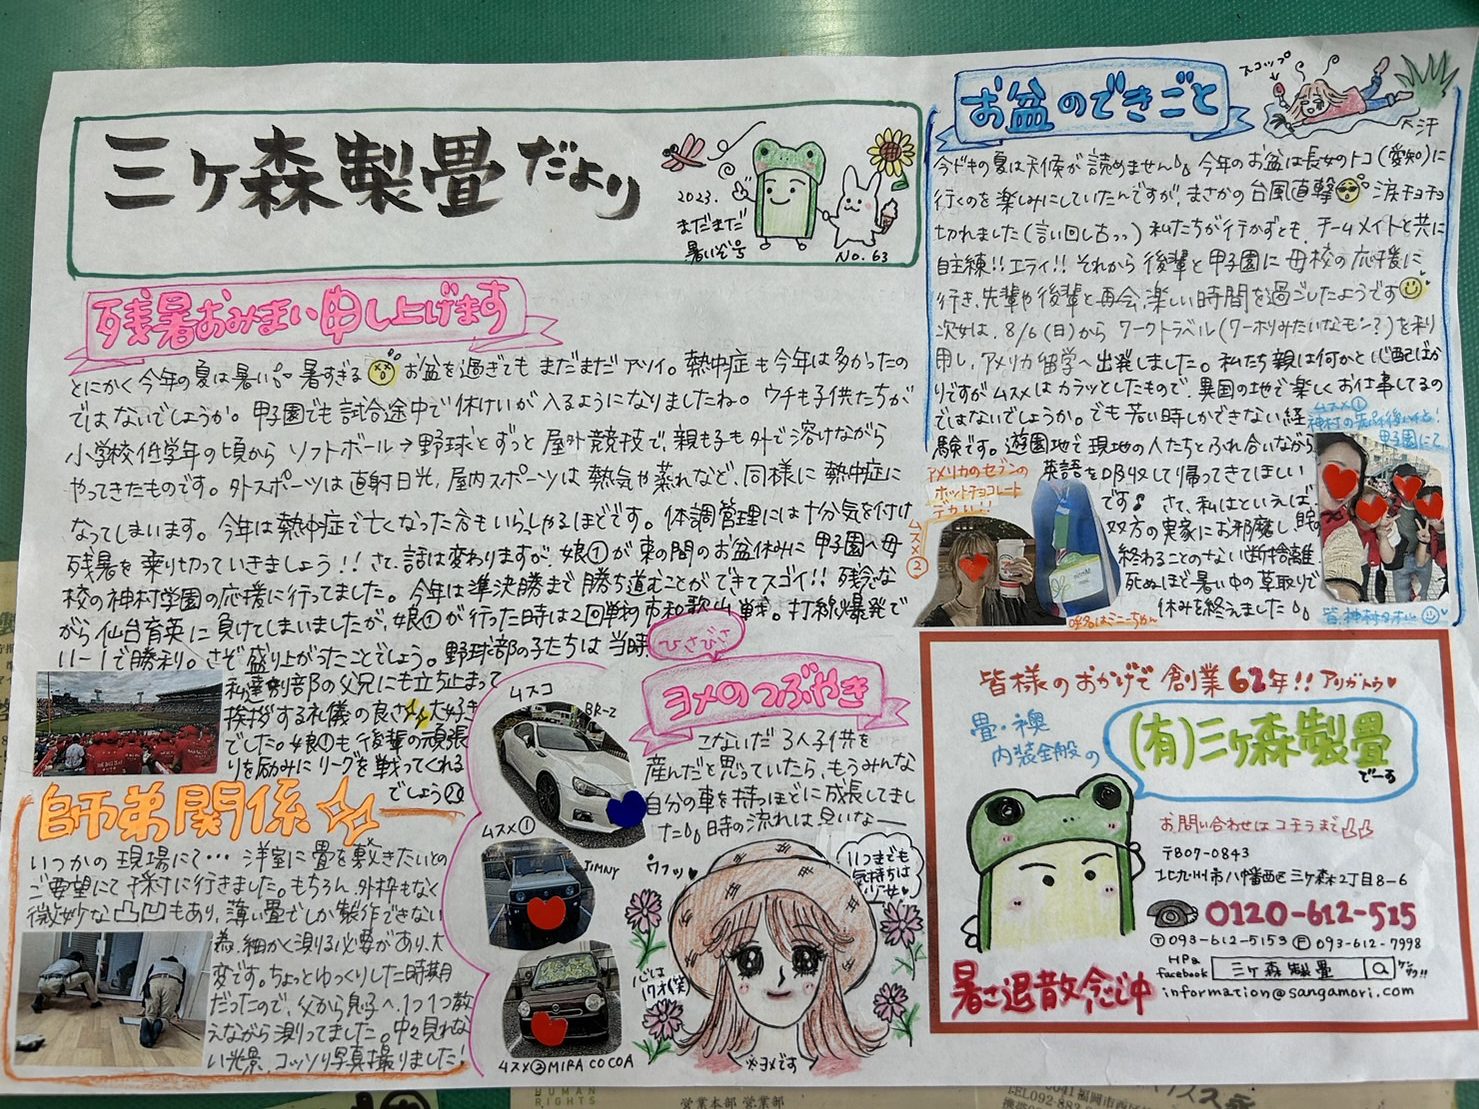 三ケ森製畳だより
2023.
まだまだ
暑いぞ号
No.63
残暑おみまい申し上げます
とにかく今年の夏は暑い 暑すぎる お盆を過ぎても まだまだアツイ。熱中症も今年は多かったの
ではないでしょうか。甲子園でも試合途中で休けいが入るようになりましたね。ウチも子供たちが
小学校低学年の頃から ソフトボール→野球とずっと屋外競技で、親も子も外で溶けながら
やってきたものです。外スポーツは直射日光、屋内スポーツは熱気や蒸れなど、同様に熱中症に
なってしまいます。今年は熱中症で亡くなった方もいらっしゃるほどです。体調管理には十分気を付け
残暑を乗り切っていきましょう!! さて、話は変わりますが、娘①が束の間のお盆休みに甲子園へ母
校の神村学園の応援に行ってました。今年は準決勝まで勝ち進むことができてスゴイ!! 残念な
がら仙台育英に負けてしまいましたが、娘①が行った時は2回戦 市和歌山戦。打線爆発で
11-1で勝利。さぞ盛り上がったことでしょう。野球部の子たちは当時
私達別部の父兄にも立ち止まって
挨拶する礼儀の良さ 大好き
でした。娘①も後輩の頑張
りを励みにリーグを戦ってくれる
でしょう
師弟関係
いつかの現場にて… 洋室に畳を敷きたいとの
ご要望にて採寸に行きました。もちろん、外枠もなく
微妙な凸凹もあり、薄い畳でしか製作できない
為、細かく測る必要があり、大
変です。ちょっとゆっくりした時期
だったので、父から息子へ、1つ1つ教
えながら測ってました。中々見れな
い光景、コッソリ写真撮りました!
ひさびさ
ヨメのつぶやき
こないだ3人子供を
産んだと思っていたら、もうみんな
自分の車を持つほどに成長してまし
た 時の流れは早いなー
ムスコ
BR-Z
ムスメ①
JIMNY
ムスメ②MIRA COCOA
ウフッ
いつまでも
気持ちは
心は
17才(笑)
※ヨメです
お盆のできごと
スコップ
大汗
今ドキの夏は天候が読めません 今年のお盆は長女のトコ(愛知)に
行くのを楽しみにしていたんですが、まさかの台風直撃 涙チョチョ
切れました(言い回し古っっ) 私たちが行かずとも、チームメイトと共に
自主練!!エライ!! それから後輩と甲子園に母校の応援に
行き、先輩や後輩と再会、楽しい時間を過ごしたようです
次女は、8/6(日)から ワークトラベル(ワーホリみたいなモン?)を利
用し、アメリカ留学へ出発しました。私たち親は何かと心配ばか
りですがムスメはカラッとしたもので、異国の地で楽しくお仕事してるの
ではないでしょうか。でも若い時しかできない経
験です。遊園地で現地の人たちとふれ合いながら
英語を吸収して帰ってきてほしい
です さて、私はといえば
双方の実家にお邪魔し
終わることのない断捨離
死ぬほど暑い中の草取りで
休みを終えました
ムスメ①
甲子園にて
アメリカのセブンの
ホットチョコレート
デカい!!
ムスメ②
呼名はミニーちゃん
皆様のおかげで創業62年!! アリガトウ
畳・襖
内装全般の
(有)三ケ森製畳
でーす
お問い合わせはコチラまで
〒807-0843
北九州市八幡西区三ケ森2丁目8-6
0120-612-515
Ⓣ093-612-5153 Ⓕ093-612-7998
HP&
facebook
三ケ森製畳
information@sangamori.com
暑さ退散念じ中
HUMAN
RIGHTS
営業本部 営業部